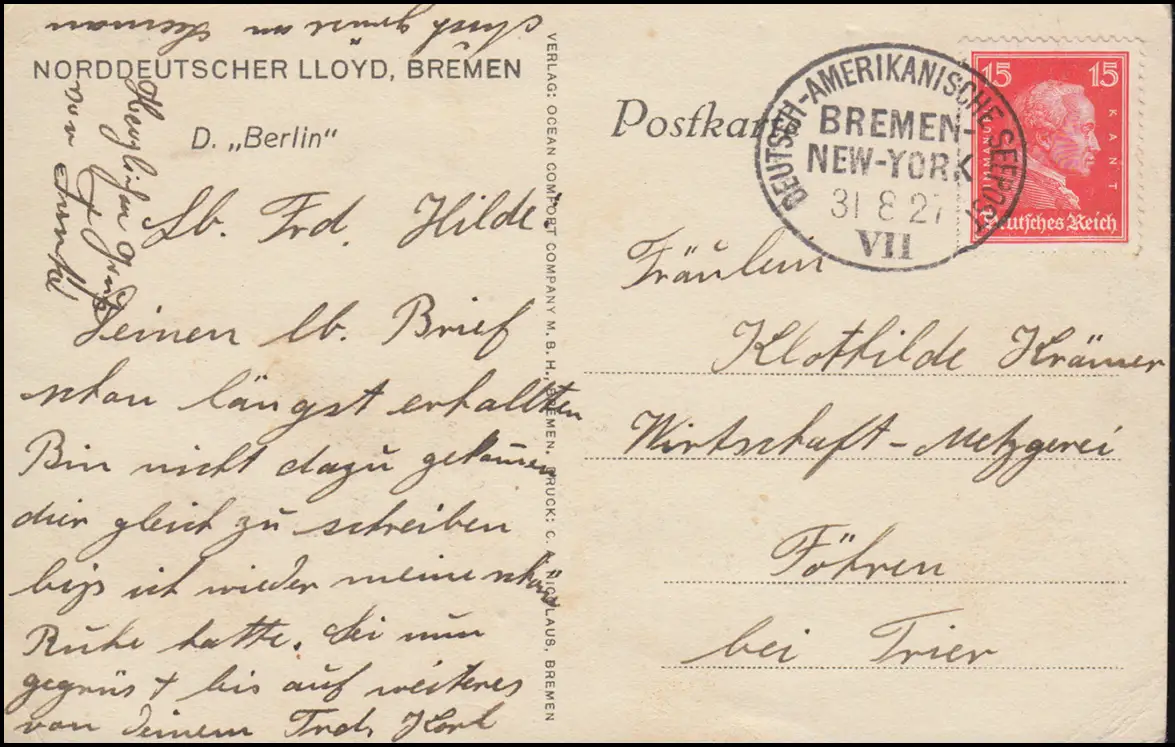 Auch grüse an
Herman
NORDDEUTSCHER LLOYD, BREMEN
D. „Berlin"
Herzlichen Gruß
von
Lb. Frd. Hilde!
Deinen lb. Brief
schon längst erhallten
Bin nicht dazu gekomen
dier gleich zu schreiben
bijs ich wieder meine schöne
Ruhe hatte. Sei nun
gegrüs + bis auf weiteres
von deinem Frd.
VERLAG: OCEAN COMFORT COMPANY M.B.H., BREMEN. DRUCK: C. NICOLAUS, BREMEN
Postkarte
DEUTSCH-AMERIKANISCHE SEEPOST
BREMEN-
NEW-YORK
31 8 27
VII
15 15
IMMANUEL KANT
Deutsches Reich
Fräulein
Klothilde Krämer
Wirtschaft - Metzgerei
Föhren
bei Trier